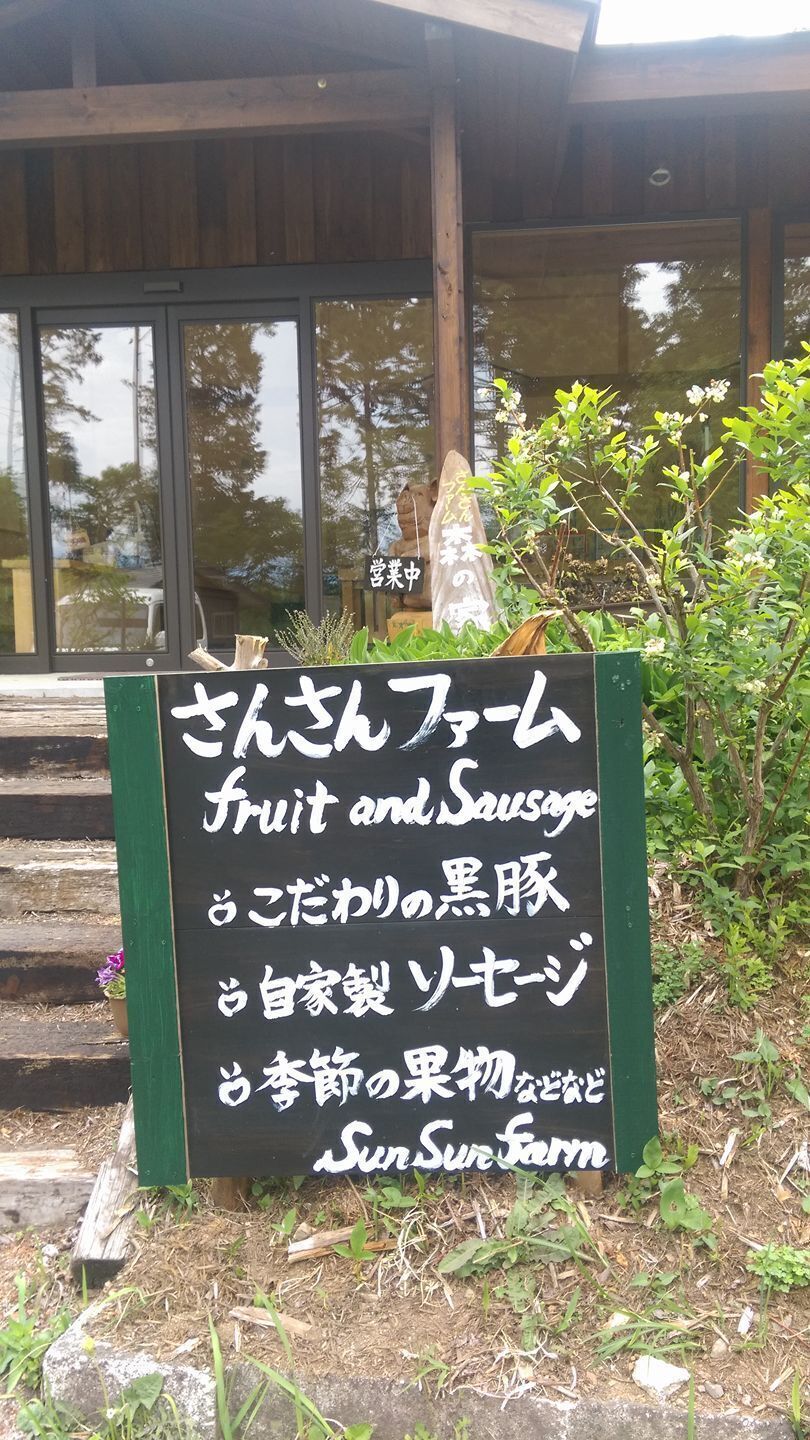 さんさん
ファーム
森の家
営業中
さんさんファーム
fruit and Sausage
こだわりの黒豚
自家製 ソーセージ
季節の果物などなど
Sun Sun farm